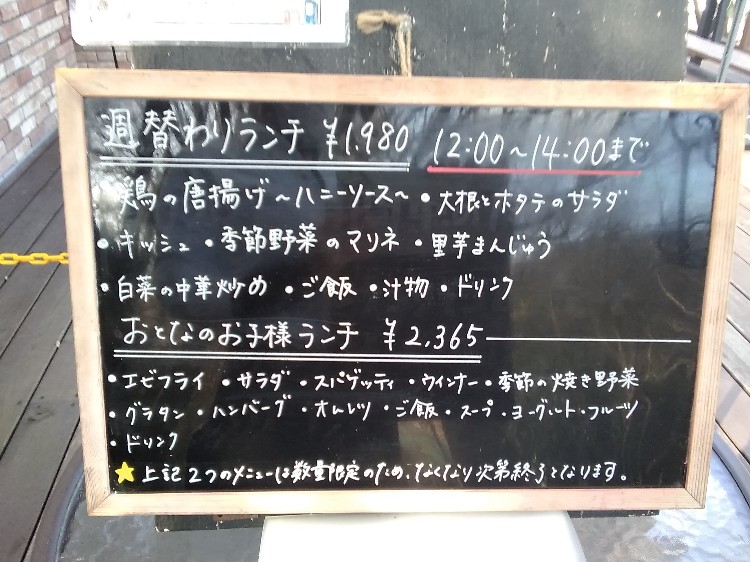 週替わりランチ ¥1,980 12:00〜14:00まで
鶏の唐揚げ〜ハニーソース〜 ・大根とホタテのサラダ
・キッシュ ・季節野菜のマリネ ・里芋まんじゅう
・白菜の中華炒め ・ご飯 ・汁物 ・ドリンク
おとなのお子様ランチ ¥2,365
・エビフライ ・サラダ ・スパゲッティ ・ウインナー ・季節の焼き野菜
・グラタン ・ハンバーグ ・オムレツ ・ご飯 ・スープ ・ヨーグルト ・フルーツ
・ドリンク
★上記2つのメニューは数量限定のため、なくなり次第終了となります。